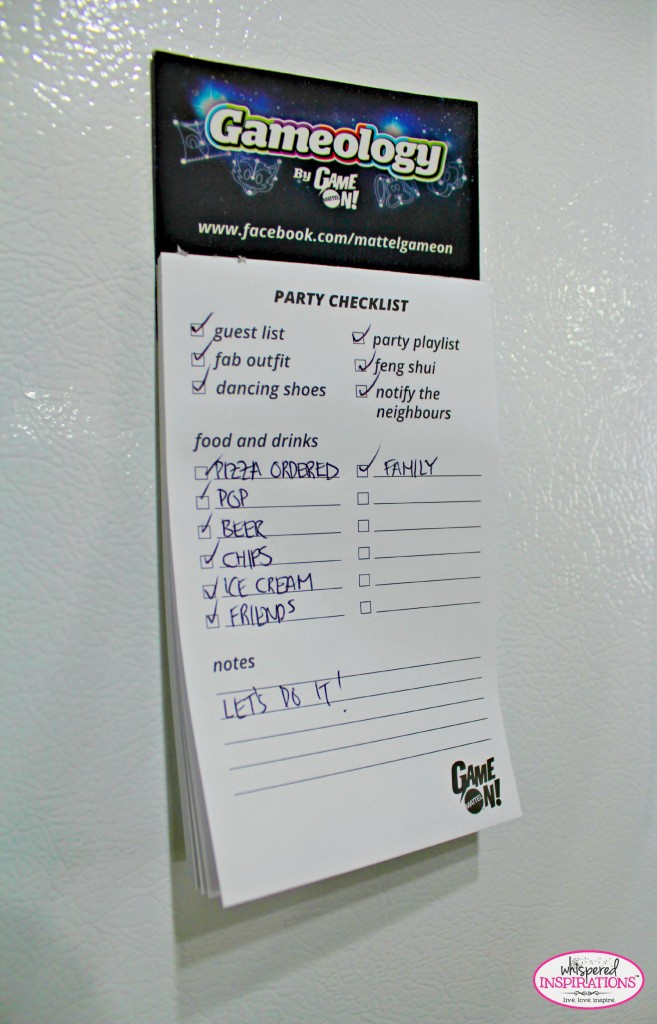 Gameology
By GAME ON!
MATTEL
www.facebook.com/mattelgameon
PARTY CHECKLIST
guest list
fab outfit
dancing shoes
party playlist
feng shui
notify the
neighbours
food and drinks
PIZZA ORDERED
POP
BEER
CHIPS
ICE CREAM
FRIENDS
FAMILY
notes
LET'S DO IT!
GAME
MATTEL ON!
whispered
INSPIRATIONS™
live, love, inspire